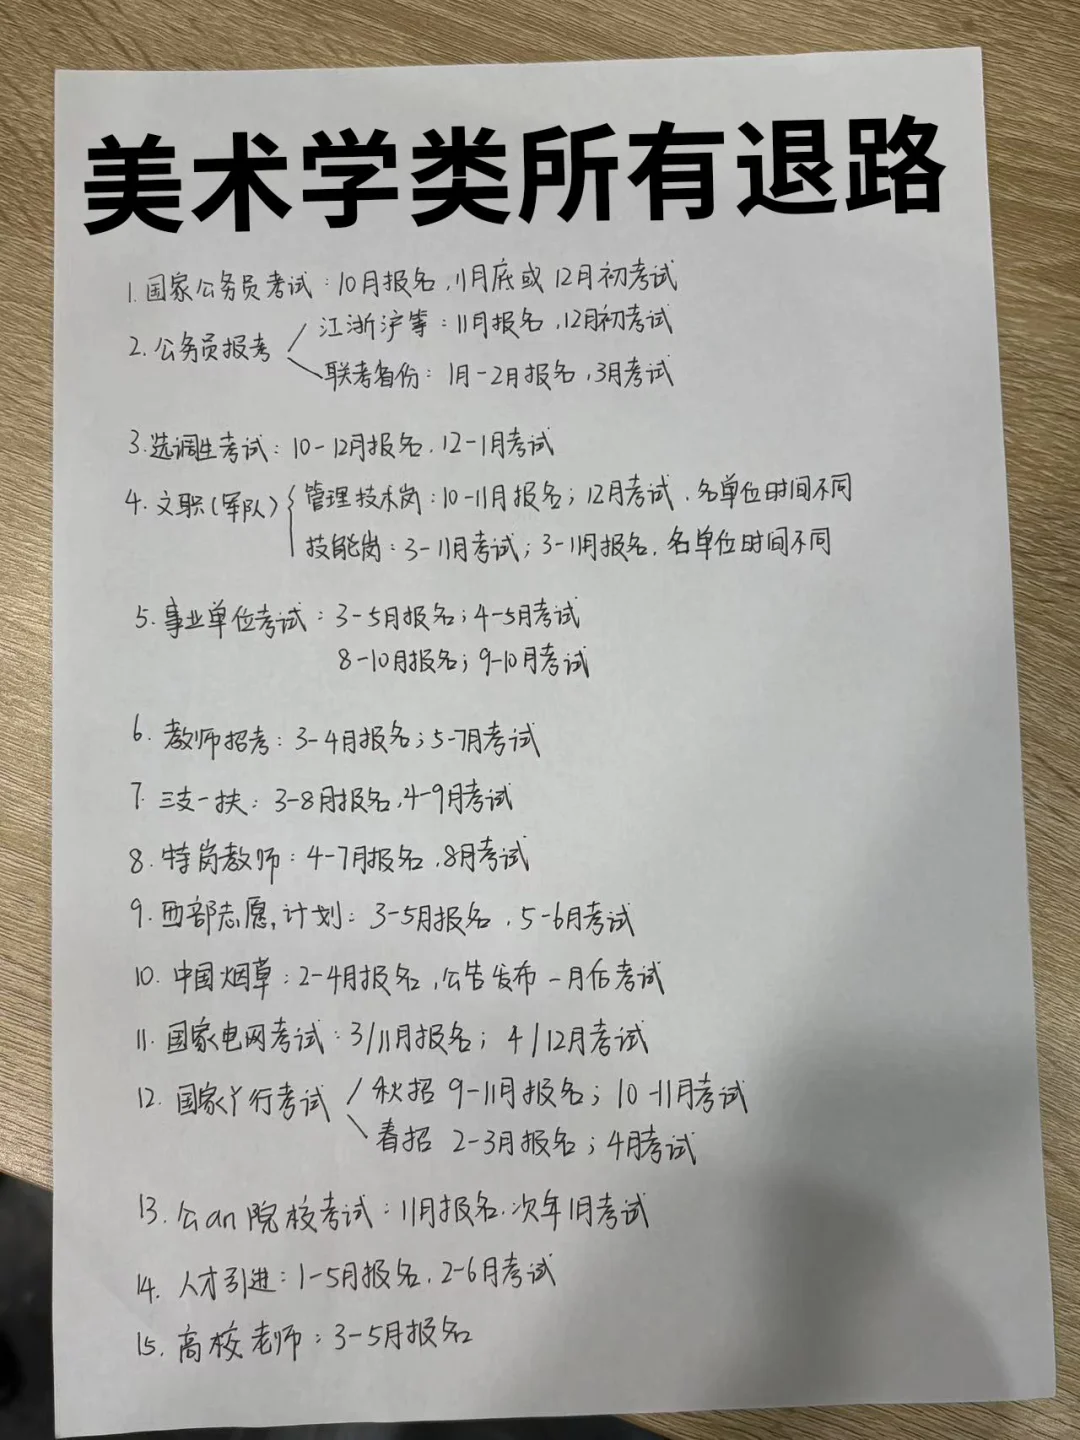 美术学类所有退路
1. 国家公务员考试：10月报名，11月底或12月初考试
2. 公务员报考 江浙沪等：11月报名，12月初考试
联考省份：1月-2月报名，3月考试
3. 选调生考试：10-12月报名，12-1月考试
4. 文职(军队) 管理技术岗：10-11月报名；12月考试，各单位时间不同
技能岗：3-11月考试；3-11月报名，各单位时间不同
5. 事业单位考试：3-5月报名；4-5月考试
8-10月报名；9-10月考试
6. 教师招考：3-4月报名；5-7月考试
7. 三支一扶：3-8月报名，4-9月考试
8. 特岗教师：4-7月报名，8月考试
9. 西部志愿，计划：3-5月报名，5-6月考试
10. 中国烟草：2-4月报名，公告发布一月后考试
11. 国家电网考试：3/11月报名；4/12月考试
12. 国家丫行考试 秋招 9-11月报名；10-11月考试
春招 2-3月报名；4月考试
13. 公an院校考试：11月报名，次年1月考试
14. 人才引进：1-5月报名，2-6月考试
15. 高校老师：3-5月报名